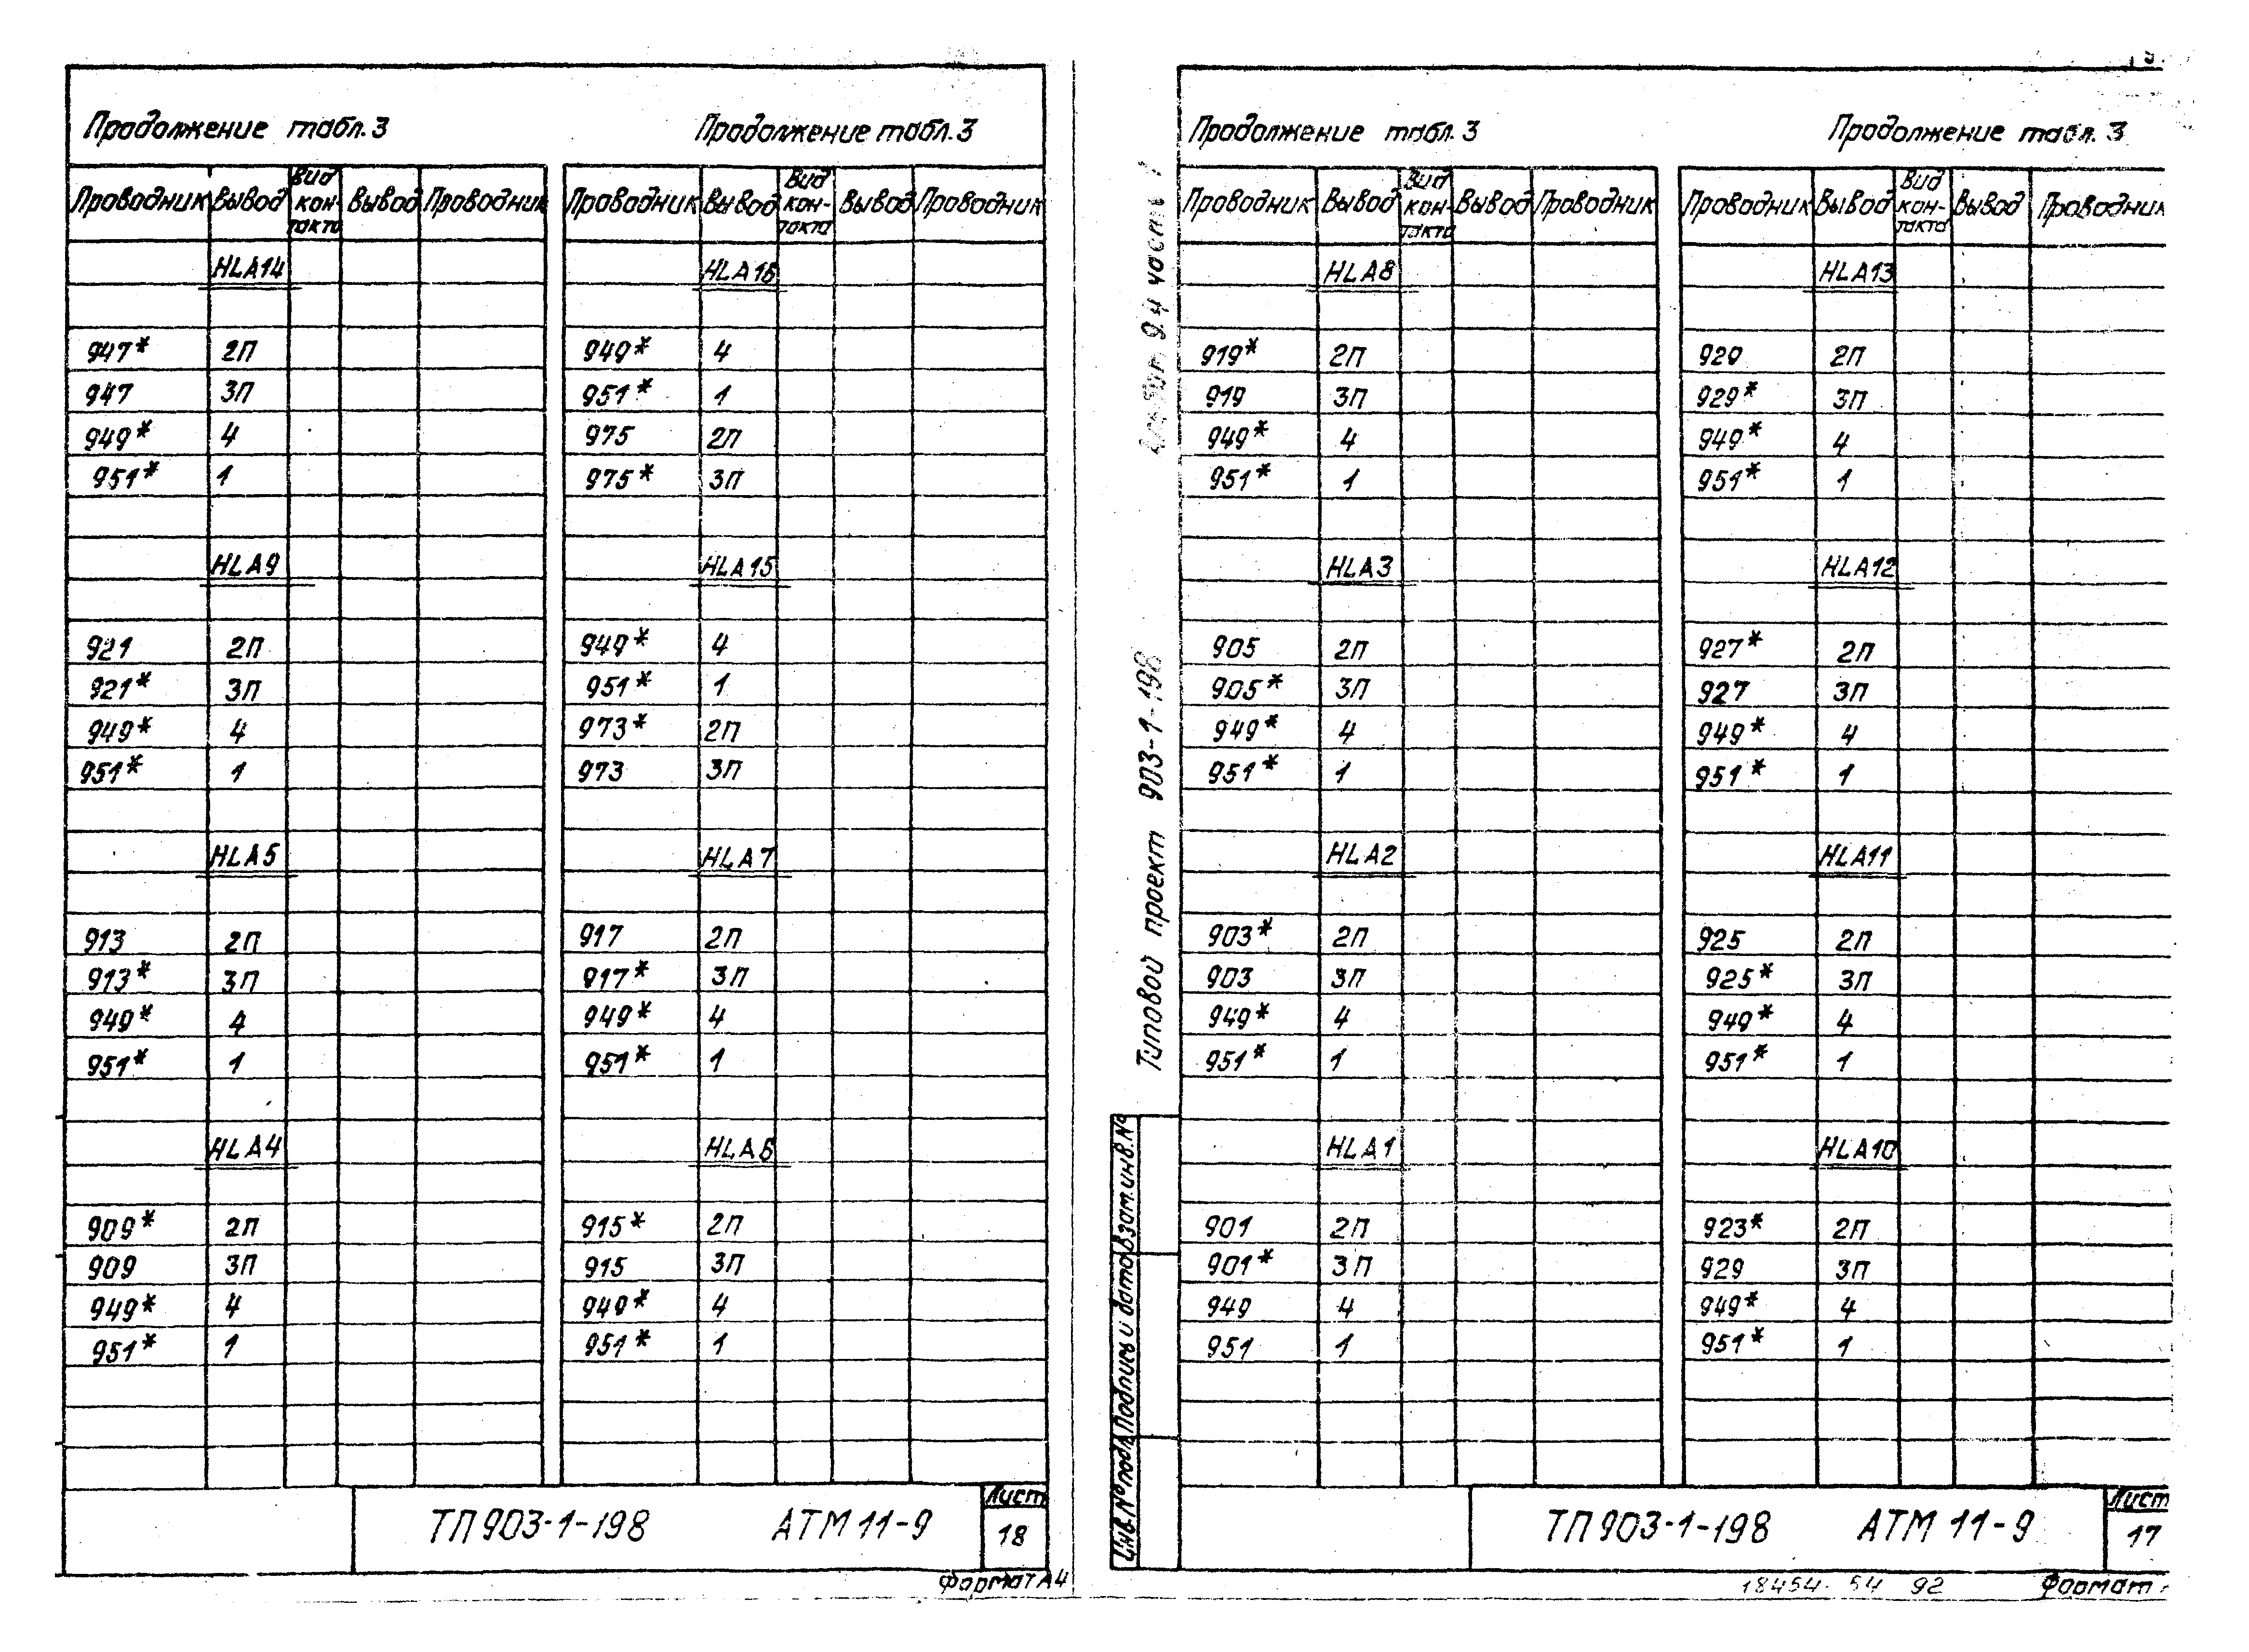 Продолжение табл. 3
Продолжение табл. 3
Проводник Вывод Вид кон- такта Вывод Проводник
Проводник Вывод Вид кон- такта Вывод Проводник
HLA14
947* 2П
947 3П
949* 4
951* 1
HLA9
921 2П
921* 3П
949* 4
951* 1
HLA5
913 2П
913* 3П
949* 4
951* 1
HLA4
909* 2П
909 3П
949* 4
951* 1
HLA16
949* 4
951* 1
975 2П
975* 3П
HLA15
949* 4
951* 1
973* 2П
973 3П
HLA7
917 2П
917* 3П
949* 4
951* 1
HLA6
915* 2П
915 3П
949* 4
951* 1
ТП 903-1-198 АТМ 11-9
Лист
18
Формат А4
Продолжение табл. 3
Продолжение табл. 3
Проводник Вывод Вид кон- такта Вывод Проводник
Проводник Вывод Вид кон- такта Вывод Проводник
HLA8
919* 2П
919 3П
949* 4
951* 1
HLA3
905 2П
905* 3П
949* 4
951* 1
HLA2
903* 2П
903 3П
949* 4
951* 1
HLA1
901 2П
901* 3П
949 4
951 1
HLA13
929 2П
929* 3П
949* 4
951* 1
HLA12
927* 2П
927 3П
949* 4
951* 1
HLA11
925 2П
925* 3П
949* 4
951* 1
HLA10
923* 2П
929 3П
949* 4
951* 1
Типовой проект 903-1-198
9.4 часть
Инв.№ подл. Подпись и дата Взам.инв.№
ТП 903-1-198 АТМ 11-9
Лист
17
18454 54 92
Формат